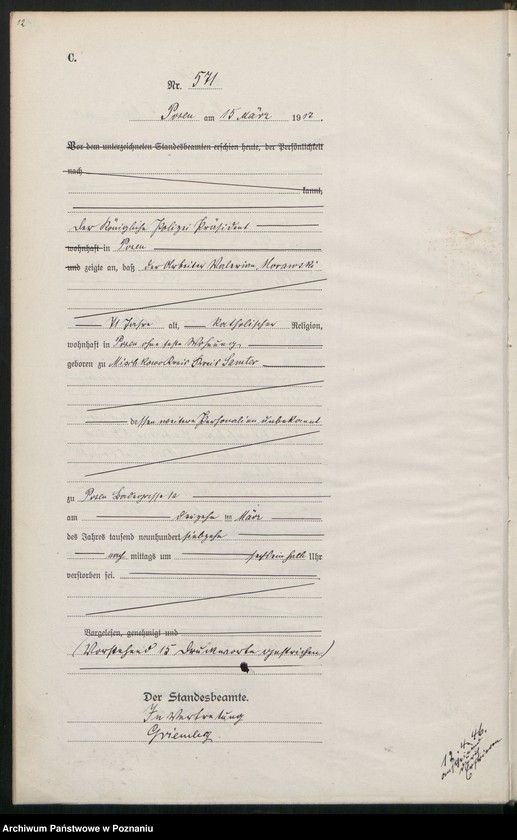 12
C.
Nr. 571
Posen am 15 März 1917.
Vor dem unterzeichneten Standesbeamten erschien heute, der Persönlichkeit
nach
kannt,
der Königliche Polizei Präsident
wohnhaft in Posen
und zeigte an, daß der Arbeiter Valerian Morawski
71 Jahre alt, katholischer Religion,
wohnhaft in Posen ohne feste Wohnung,
geboren zu Kreis Samter
dessen weitere Personalien unbekannt
zu Posen 12
am dreizehn im März
des Jahres tausend neunhundert siebzehn
nach mittags um Uhr
verstorben sei.
Vorgelesen, genehmigt und
(Vorstehend 15 Druckworte gestrichen)
Der Standesbeamte.
In Vertretung
12.4.46.
Archiwum Państwowe w Poznaniu